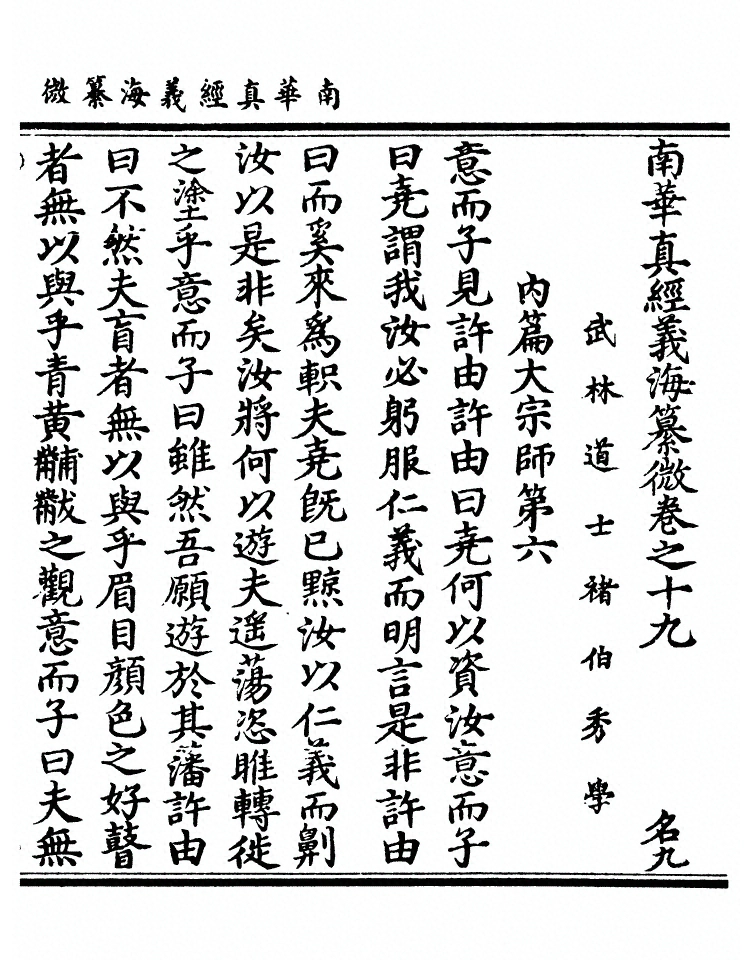 南華真經義海纂微
南華真經義海纂微卷之十九 名九
武林道士褚伯秀學
內篇大宗師第六
意而子見許由許由曰堯何以資汝意而子
曰堯謂我汝必躬服仁義而明言是非許由
曰而奚來爲軹夫堯旣已黥汝以仁義而劓
汝以是非矣汝將何以遊夫遥蕩恣睢轉徙
之塗乎意而子曰雖然吾願遊於其藩許由
曰不然夫盲者無以與乎眉目顔色之好瞽
者無以與乎青黃黼黻之觀意而子曰夫無